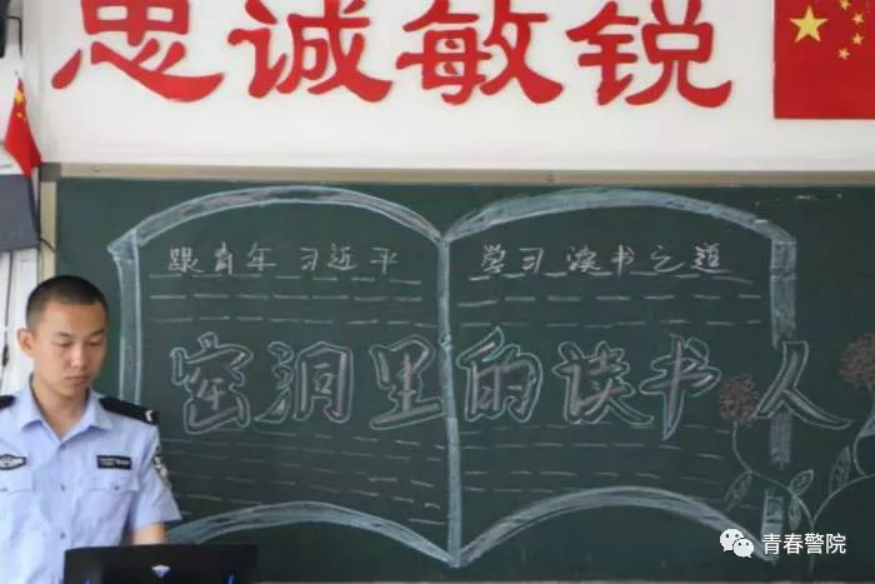 忠诚敏锐
跟青年习近平 学习读书之道
窑洞里的读书人
青春警院